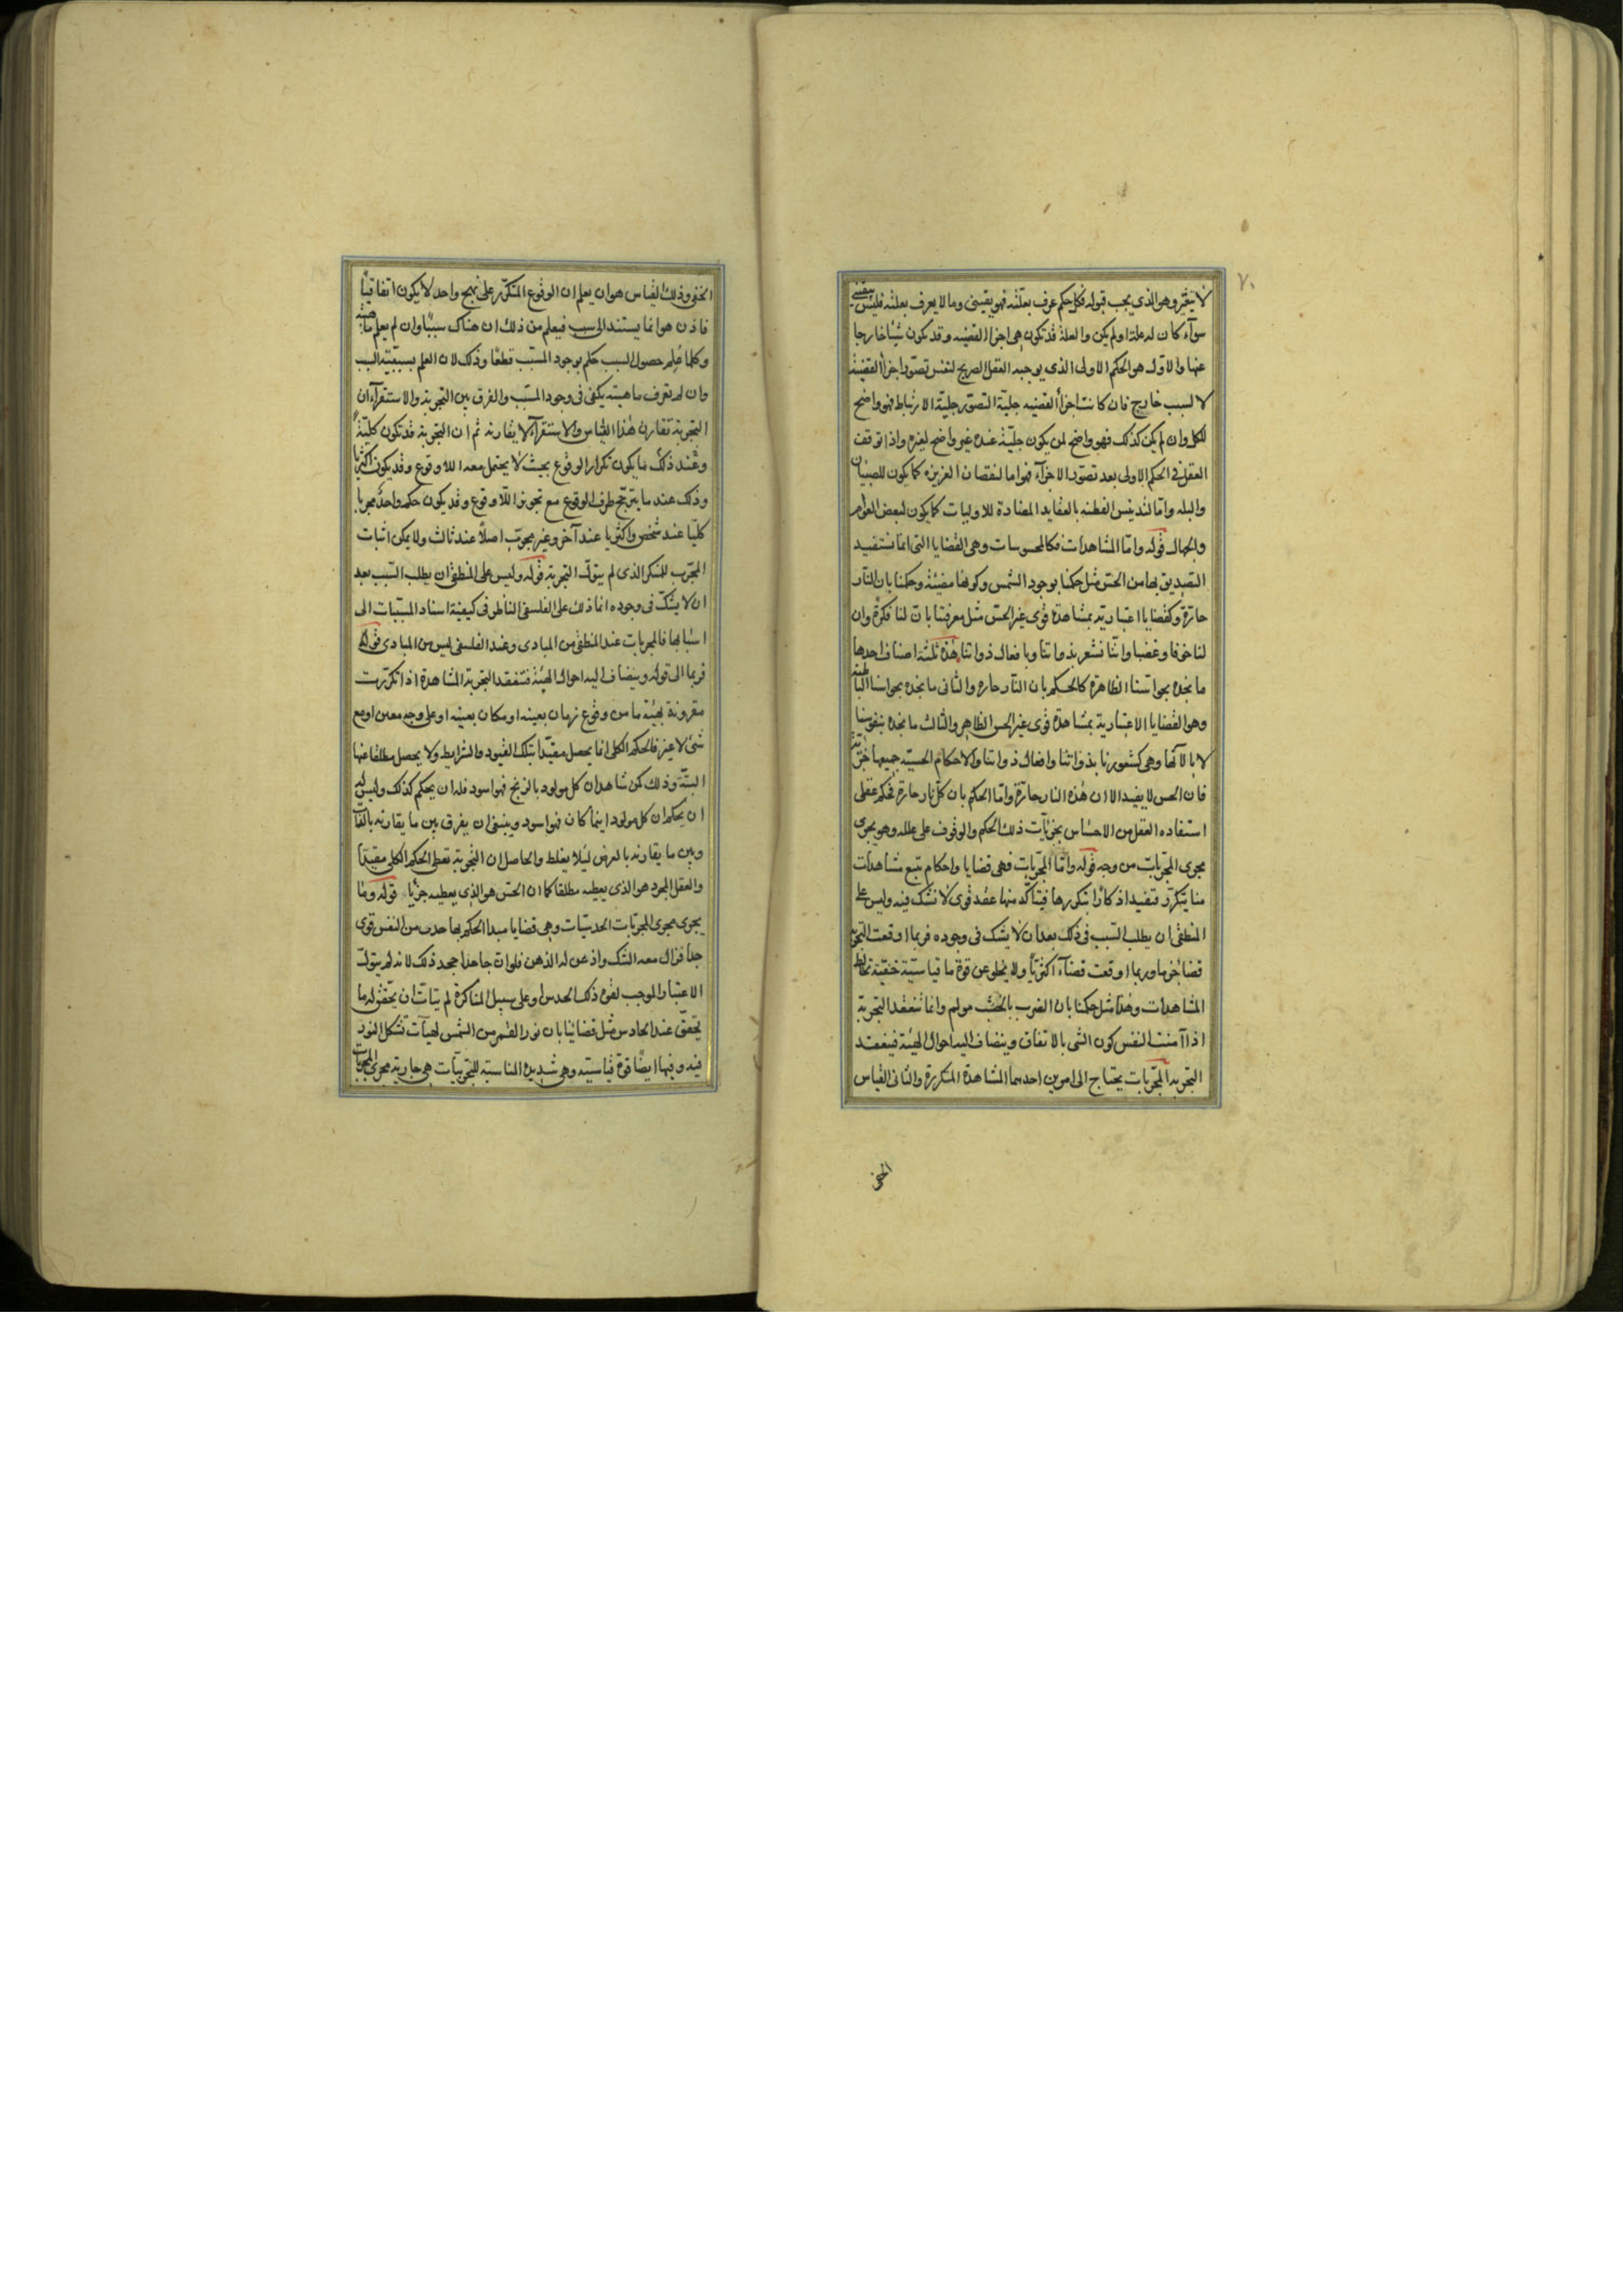 ٧٠
لا يتغير وهو الذى يجب قبوله فكل حكم عرف بعلته فهو يقينى وما لا يعرف بعلته فليس بيقينى
سوآء كان له علة او لم يكن والعلة قد تكون هى اجزا القضيه وقد تكون شيئا خارجا
عنها والاول هو الحكم الاولى الذى يوجبه العقل الصريح لنفس تصور اجزأ القضية
لا لسبب خارج فان كانت اجزأ القضيه جلية التصور جلية الارتباط فهو واضح
للكل وان لم يكن كذلك فهو واضح لمن يكون جلية عنده غير واضح لغيره واذا توقف
العقل فى الحكم الاولى بعد تصور الاجزآء فهو اما لنقصان الغريزه كما يكون للصبيان
والبله واما لتدنيس الفطنه بالعقايد المضادة للاوليات كما يكون لبعض العوام
والجهال قوله واما المشاهدات فكالمحسوسات وهى القضايا التى انما نستفيد
التصديق بها من الحس مثل حكمنا بوجود الشمس وكونها مضيئة وحكمنا بان النار
حارة وكقضايا اعتبارية بمشاهدة قوى غير الحس مثل معرفتنا بان لنا فكرة وان
لنا خوفا وغضبا وانا نشعر بذواتنا وبافعال ذواتنا هذه ثلثة اصناف احدها
ما نجده بحواسنا الظاهرة كالحكم بان النار حاره والثانى ما نجده بحواسنا الباطنة
وهو القضايا الاعتبارية بمشاهدة قوى غير الحس الظاهر والثالث ما نجده بنفوسنا
لا بالآتها وهى كشعورنا بذواتنا وافعال ذواتنا والاحكام الحسية جميعها جزئية
فان الحس لا يفيد الا ان هذه النار حارة واما الحكم بان كل نار حارة فحكم عقلى
استفاده العقل من الاحساس بجزئيات ذلك الحكم والوقوف على علله وهو يجرى
مجرى المجربات من وجه قوله واما المجربات فهى قضايا واحكام تتبع مشاهدات
منا يتكرر فتفيد اذكارا بتكررها فيتاكد منها عقد قوى لا نشك فيه وليس على
المنطقى ان يطلب السبب فى ذلك بعد ان لا يشك فى وجوده فربما اوقعت التجربة
قضا جزما وربما اوقعت قضآء اكثريا ولا يخلو عن قوة ما قياسية خفية تخالط
المشاهدات وهذا مثل حكمنا بان الضرب بالخشب مولم وانما تنعقد التجربة
اذا آمنت النفس كون الشى بالاتفاق وينضاف اليه احوال الهيئة فينعقد
التجربه المجربات يحتاج الى امرين احدهما المشاهدة المتكررة والثانى القياس
الخفى
الخفى وذلك القياس هو ان يعلم ان الوقوع المتكرر على نهج واحد لا يكون اتفاقيا
فاذن هو انما يستند الى سبب فيعلم من ذلك ان هناك سببا وان لم يعلم ماهيته
وكلما علم حصول السبب حكم بوجود المسبب قطعا وذلك لان العلم بسببية السبب
وان لم تعرف ماهيته يكفى فى وجود المسبب والفرق بين التجربة والاستقرآء ان
التجربة تقارن هذا القياس والاستقرآء لا يقارنه ثم ان التجربة قد تكون كلية
وعند ذلك ما يكون تكرار الوقوع بحيث لا يحتمل معه اللاوقوع وقد يكون اكثريا
وذلك عند ما يترجح طرف الوقوع مع تجويز اللاوقوع وقد يكون حكم واحد مجربا
كليا عند شخص واكثريا عند آخر وغير مجرب اصلا عند ثالث ولا يمكن اثبات
المجرب للمنكر الذى لم يتول التجربة قوله وليس على المنطقى ان يطلب السبب بعد
ان لا يشك فى وجوده انما ذلك على الفلسفى الناظر فى كيفية اسناد المسببات الى
اسبابها فالمجربات عند المنطقى من المبادى وعند الفلسفى ليس من المبادى قوله
فربما الى قوله وينضاف اليه احوال الهيئة فتنعقد التجربة المشاهدة اذا تكررت
مقرونة بهيئة ما من وقوع زمان بعينه او مكان بعينه او على وجه معين او مع
شئ لا غير فالحكم الكلى انما يحصل مقيدا بتلك القيود والشرايط ولا يحصل مطلقا عنها
البتة وذلك كمن شاهد ان كل مولود بالزنج فهو اسود فله ان يحكم كذلك وليس له
ان يحكم ان كل مولود اينما كان فهو اسود وينبغى ان يفرق بين ما يقارنه بالذات
وبين ما يقارنه بالعرض ليلا يغلط والحاصل ان التجربة تعطى الحكم الكلى مقيدا
والعقل المجرد هو الذى يعطيه مطلقا كما ان الحس هو الذى يعطيه جزئيا قوله وما
يجرى مجرى المجربات الحدسيات وهى قضايا مبدا الحكم بها حدس من النفس قوى
جدا فزال معه الشك واذعن له الذهن فلو ان جاحدا جحد ذلك لانه لم يتول
الاعتبار الموجب لقوة ذلك الحدس او على سبيل المناكرة لم يتات ان يحقق له ما
تحقق عند الحادس مثل قضائنا بان نور القمر من الشمس لهيآت تشكل النور
فيه وفيها ايضا قوة قياسية وهى شديدة المناسبة للتجربيات هى جارية مجرى المجربات